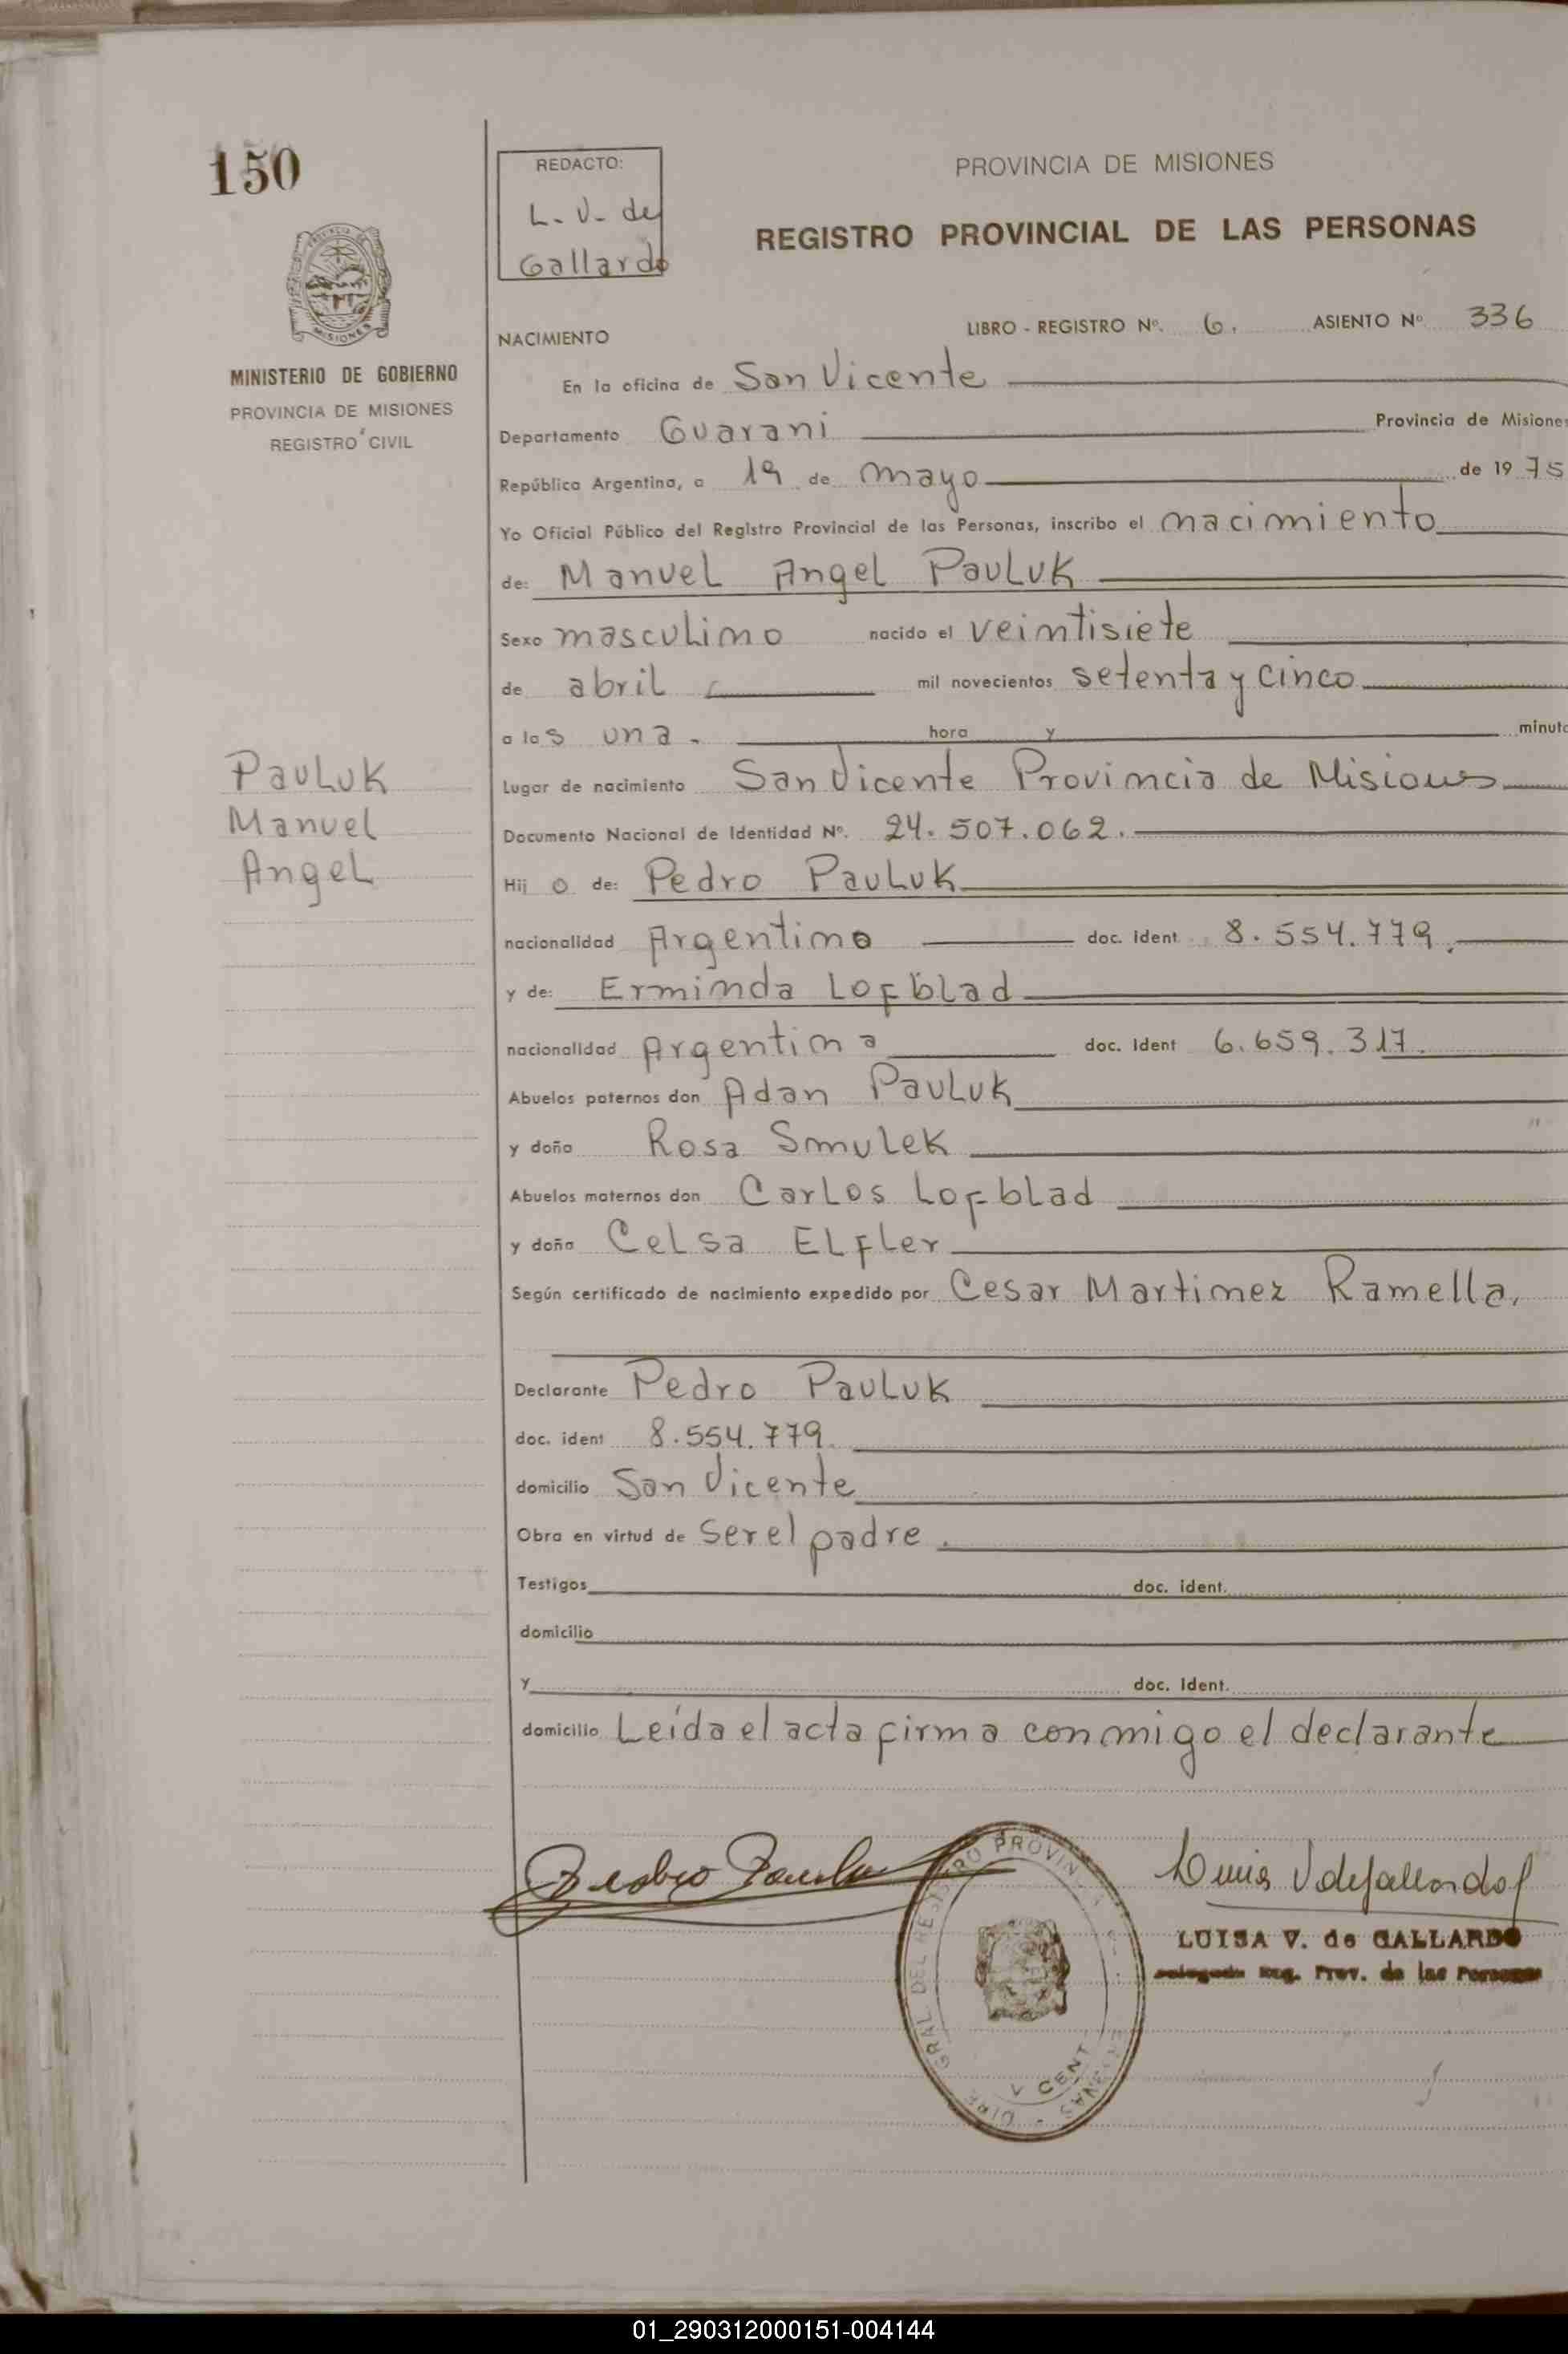 150
REDACTO:
L. V. de
Gallardo
PROVINCIA DE MISIONES
REGISTRO PROVINCIAL DE LAS PERSONAS
MISIONES
MINISTERIO DE GOBIERNO
PROVINCIA DE MISIONES
REGISTRO CIVIL
NACIMIENTO
LIBRO - REGISTRO Nº. 6. ASIENTO Nº 336
En la oficina de San Vicente
Departamento Guarani Provincia de Misiones
República Argentina, a 19 de mayo de 1975
Yo Oficial Público del Registro Provincial de las Personas, inscribo el nacimiento
de: Manuel Angel Pauluk
Sexo masculino nacido el veintisiete
de abril mil novecientos setenta y cinco
a las una. hora y minuto
Lugar de nacimiento San Vicente Provincia de Misiones
Documento Nacional de Identidad Nº. 24.507.062.
Pauluk
Manuel
Angel
Hijo de: Pedro Pauluk
nacionalidad Argentino doc. ident 8.554.779.
y de: Erminda Lofblad
nacionalidad Argentina doc. ident 6.659.317.
Abuelos paternos don Adan Pauluk
y doña Rosa Smulek
Abuelos maternos don Carlos Lofblad
y doña Celsa Elfler
Según certificado de nacimiento expedido por Cesar Martinez Ramella.
Declarante Pedro Pauluk
doc. ident 8.554.779.
domicilio San Vicente
Obra en virtud de ser el padre.
Testigos doc. ident.
domicilio
y doc. ident.
domicilio Leída el acta firma conmigo el declarante
Pedro Pauluk
Luisa V de Gallardo
LUISA V. de GALLARDO
Reg. Prov. de las Personas
01_290312000151-004144